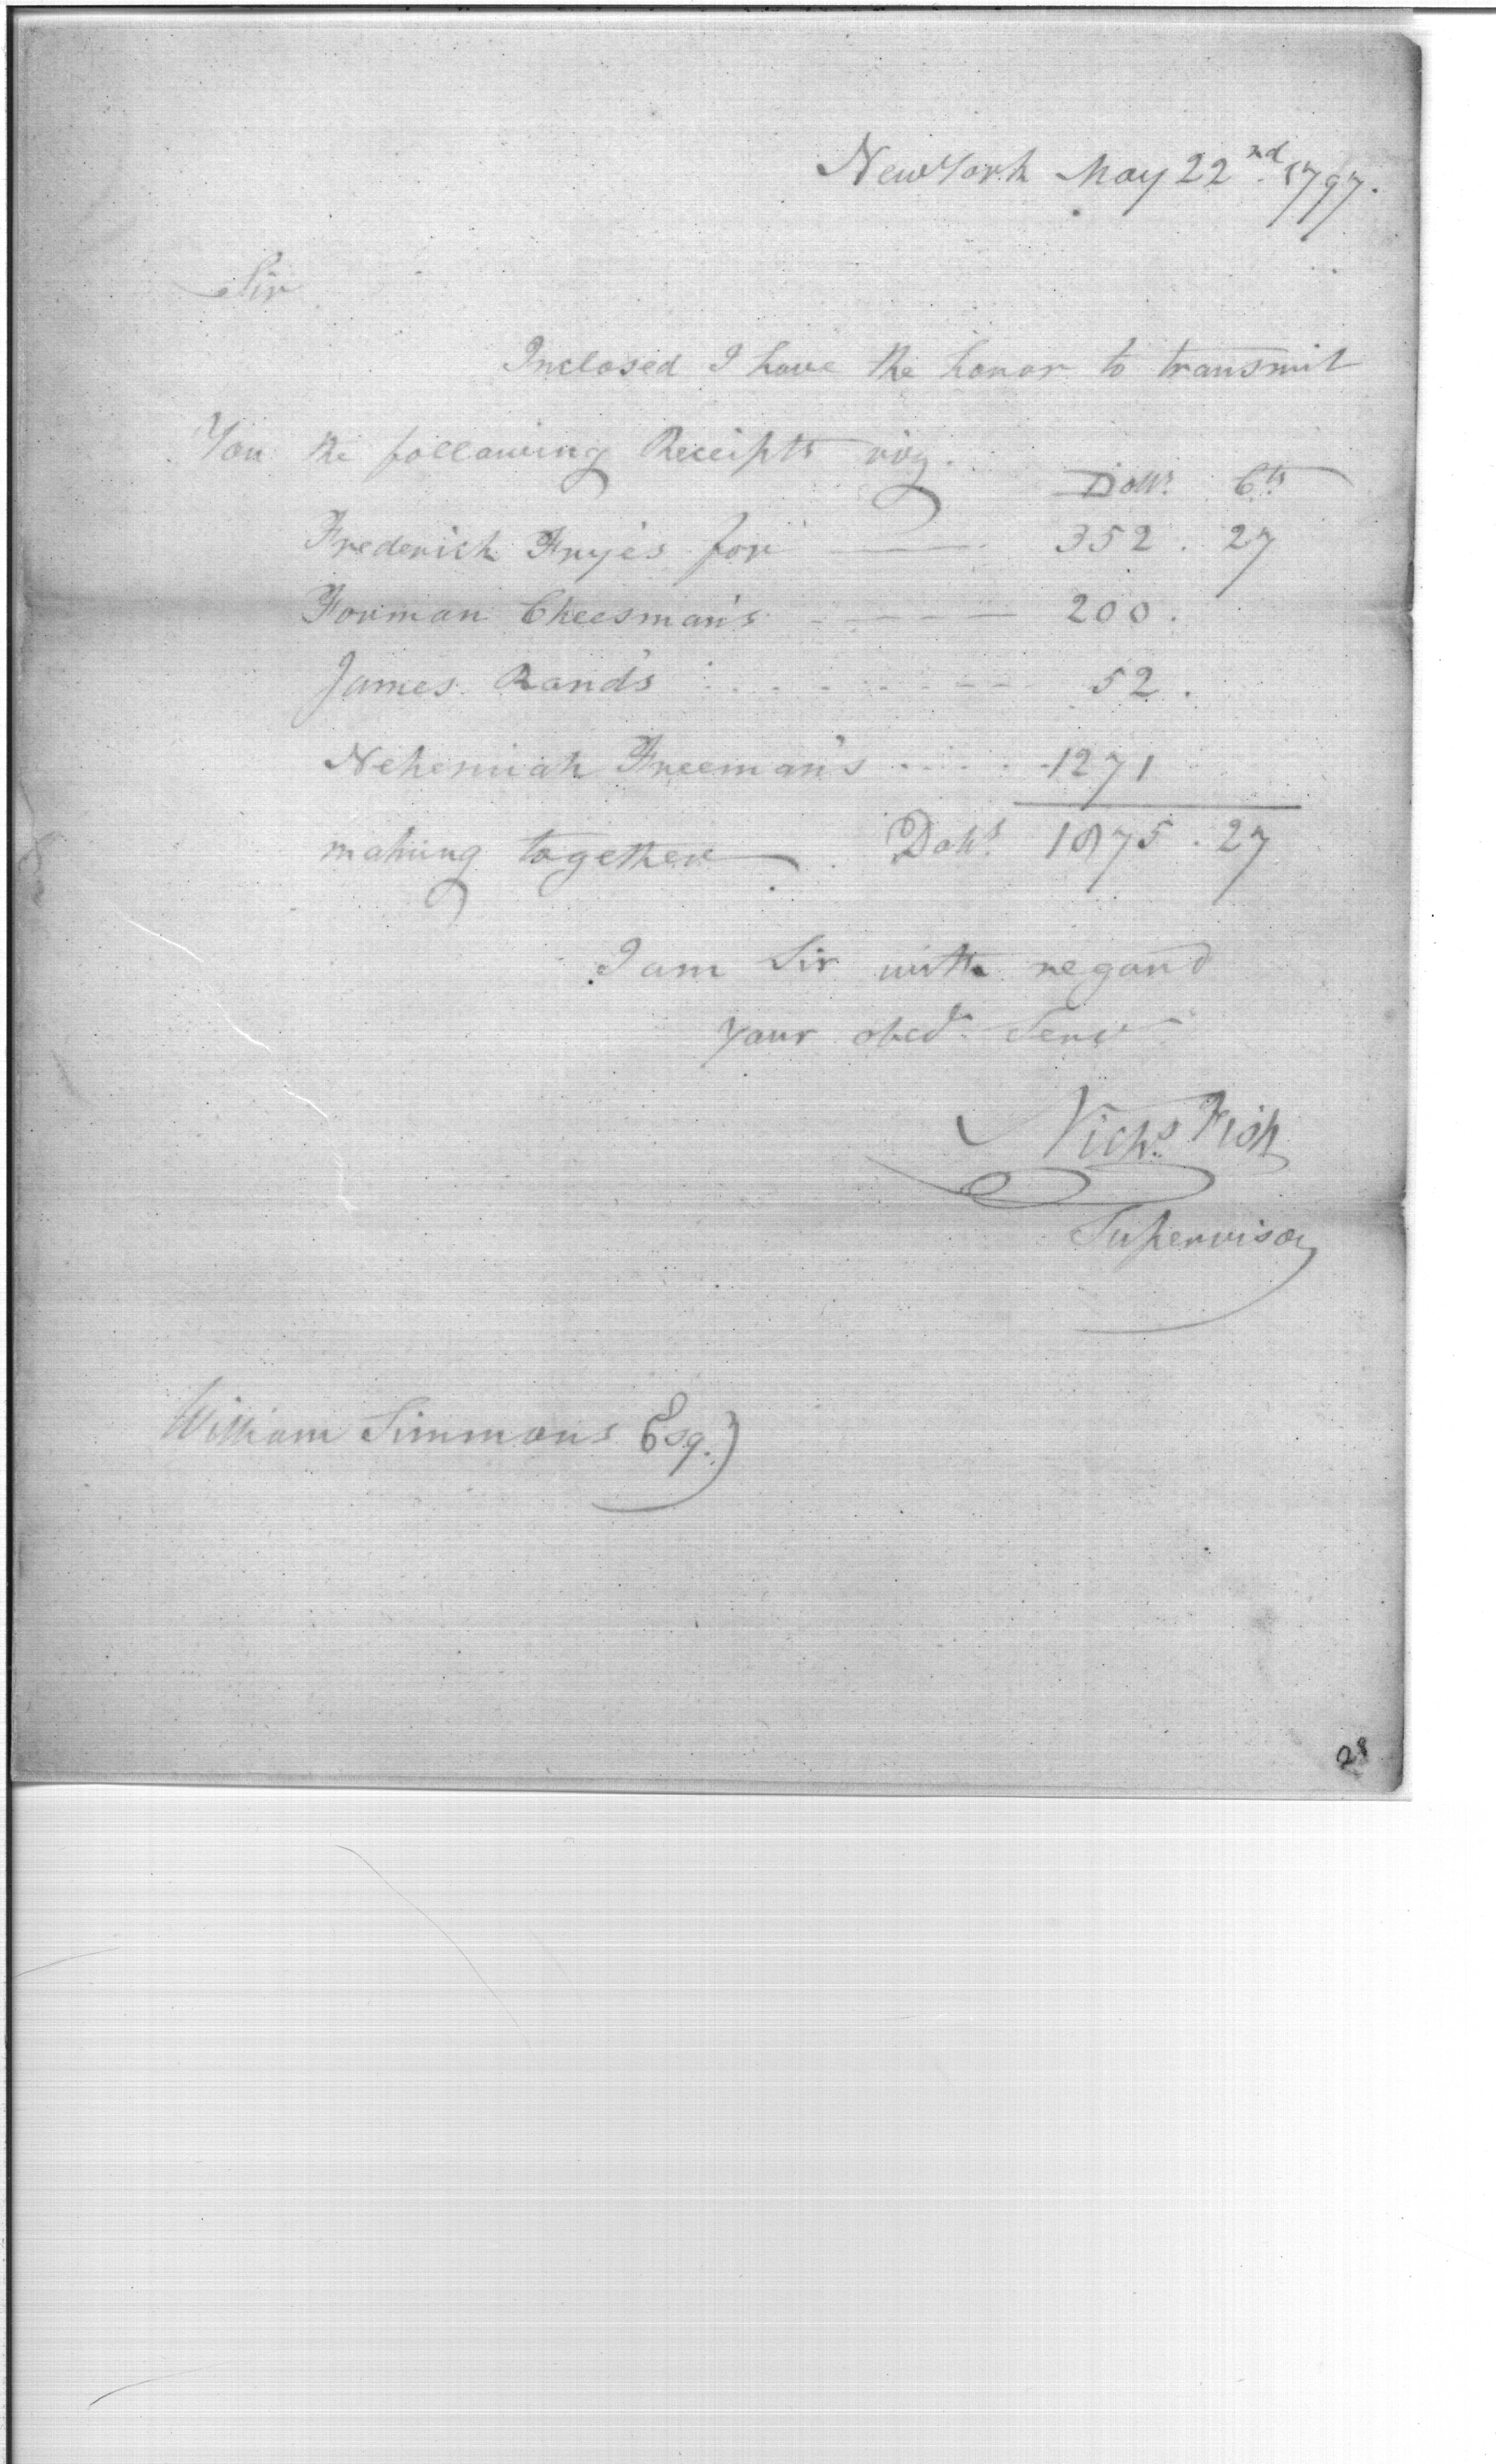 New York May 22nd. 1797.
Sir
Inclosed I have the honor to transmit
You the following Receipts viz.
Dollrs. Cts.
Frederick Frye's for 352 . 27
Forman Cheesman's 200 .
James Rand's 52 .
Nehemiah Freeman's 1271
making together Dolls. 1875 . 27
I am Sir with regard
your obedt. Servt.
Nichs. Fish
Supervisor
William Simmons Esq.
28